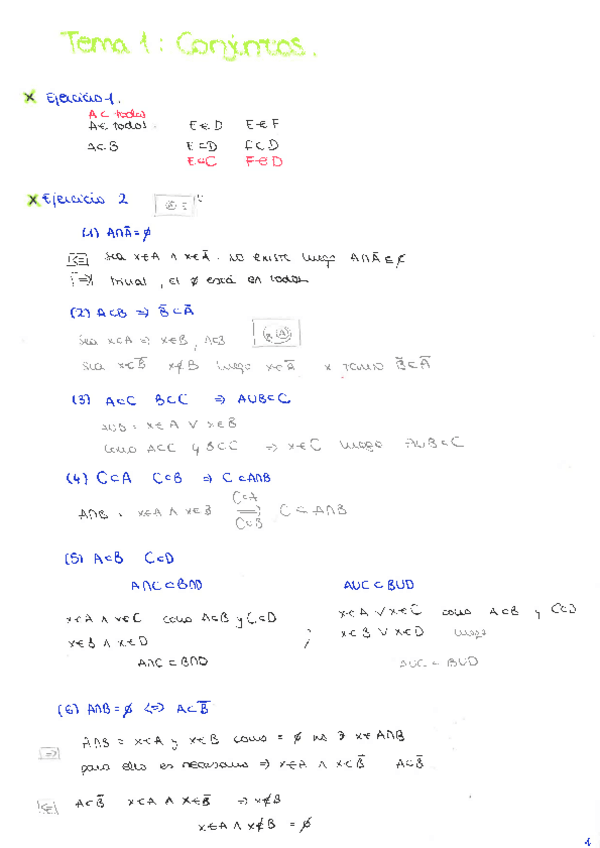 Tema 1: Conjuntos.
x Ejercicio 1.
A⊂ todos
A∈ todos. E∈D E∈F
A⊂B E⊂D F⊂D
E⊂C F∈D
x Ejercicio 2
(1) A∩Ā=∅
⊆ sea x∈A ∧ x∈Ā. no existe luego A∩Ā⊆∅
trivial, el ∅ está en todos
(2) A⊂B ⇒ B̄⊂Ā
sea x⊂A ⇒ x∈B, A⊂B
sea x∈B̄ x∉B luego x∈Ā x tanto B̄⊂Ā
(3) A⊂C B⊂C ⇒ AUB⊂C
AUB: x∈A ∨ x∈B
como A⊂C y B⊂C ⇒ x∈C luego AUB⊂C
(4) C⊂A C⊂B ⇒ C⊂A∩B
A∩B: x∈A ∧ x∈B C⊂A ⇒ C⊂B C⊂A∩B
(5) A⊂B C⊂D
A∩C⊂B∩D AUC⊂BUD
x∈A ∧ x∈C como A⊂B y C⊂D ; x∈A ∨ x∈C como A⊂B y C⊂D
x∈B ∧ x∈D x∈B ∨ x∈D luego
A∩C⊂B∩D AUC⊂BUD
(6) A∩B=∅ ⇔ A⊂B̄
⇒ A∩B = x∈A y x∈B como = ∅ no ∃ x∈A∩B
para ello es necesario ⇒ x∈A ∧ x∈B̄ A⊂B̄
⇐ A⊂B̄ x∈A ∧ x∈B̄ ⇒ x∉B
x∈A ∧ x∉B = ∅
1